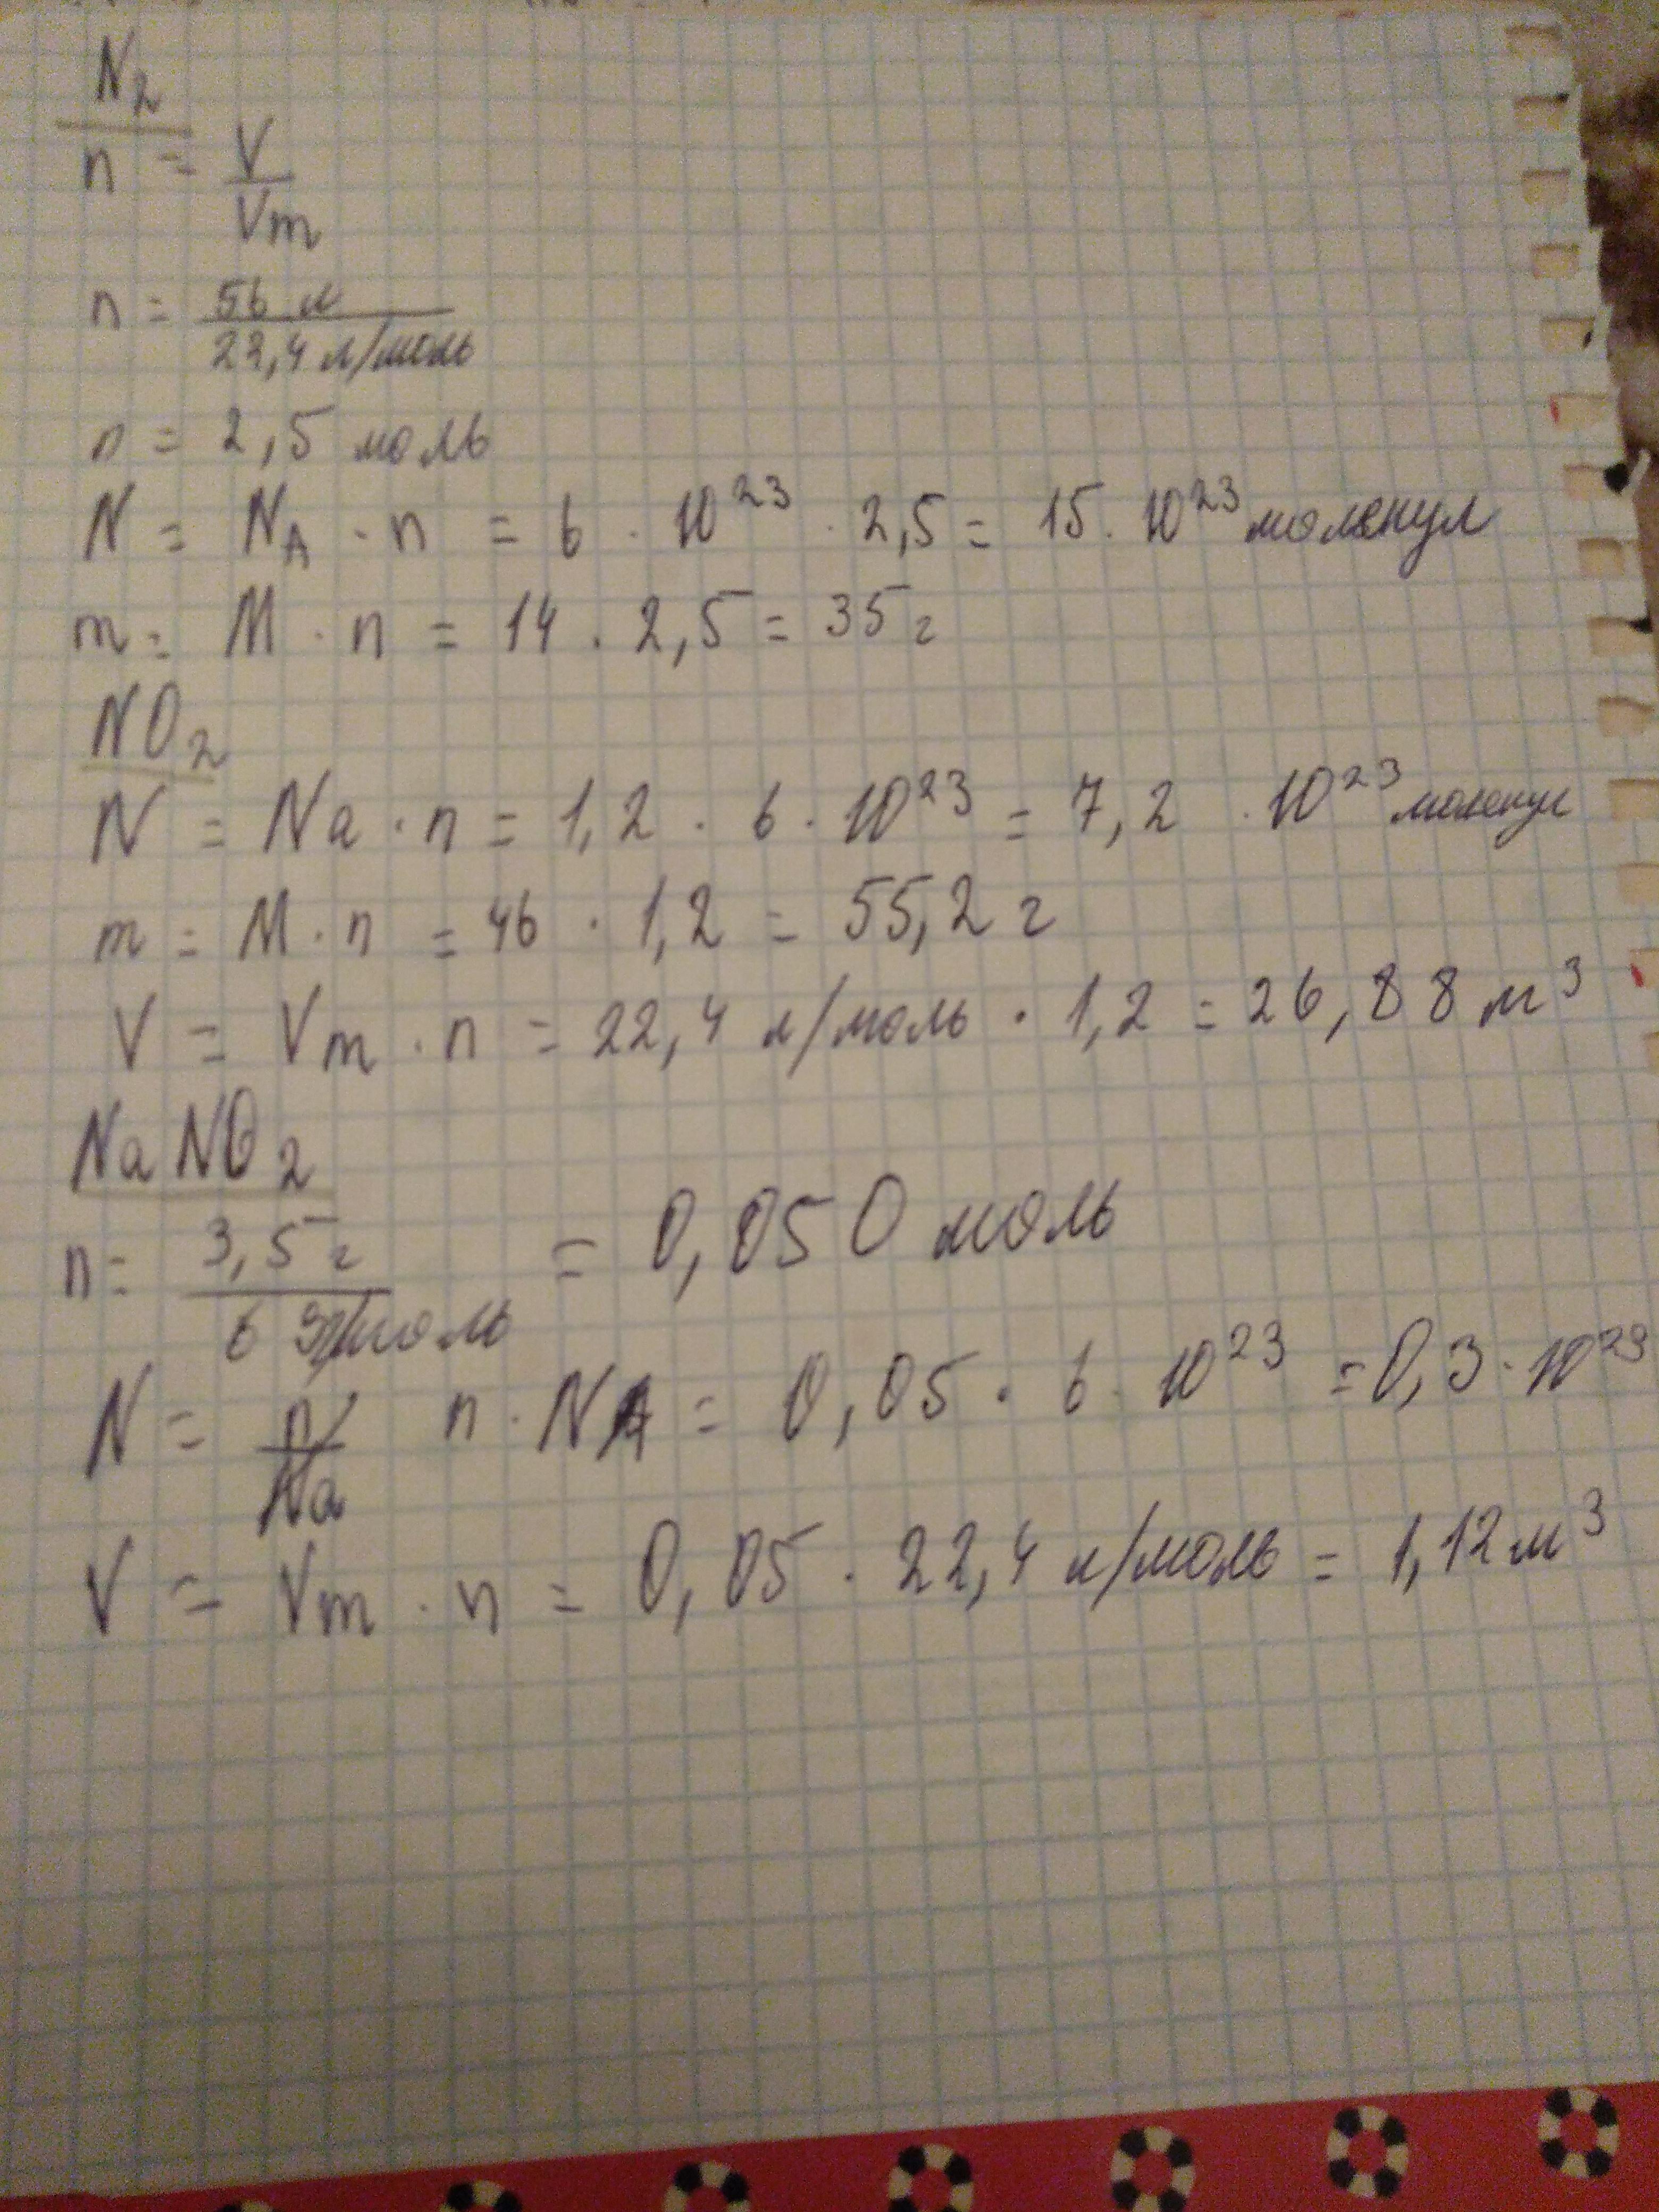 N₂
n = V/Vm
n = 56 л / 22,4 л/моль
n = 2,5 моль
N = N_A · n = 6 · 10²³ · 2,5 = 15 · 10²³ молекул
m = M · n = 14 · 2,5 = 35 г
NO₂
N = Na · n = 1,2 · 6 · 10²³ = 7,2 · 10²³ молекул
m = M · n = 46 · 1,2 = 55,2 г
V = Vm · n = 22,4 л/моль · 1,2 = 26,88 м³
NaNO₂
n = 3,5 г / 6 9г/моль = 0,050 моль
N = n/Na n · NA = 0,05 · 6 · 10²³ = 0,3 · 10²³
V = Vm · n = 0,05 · 22,4 л/моль = 1,12 м³